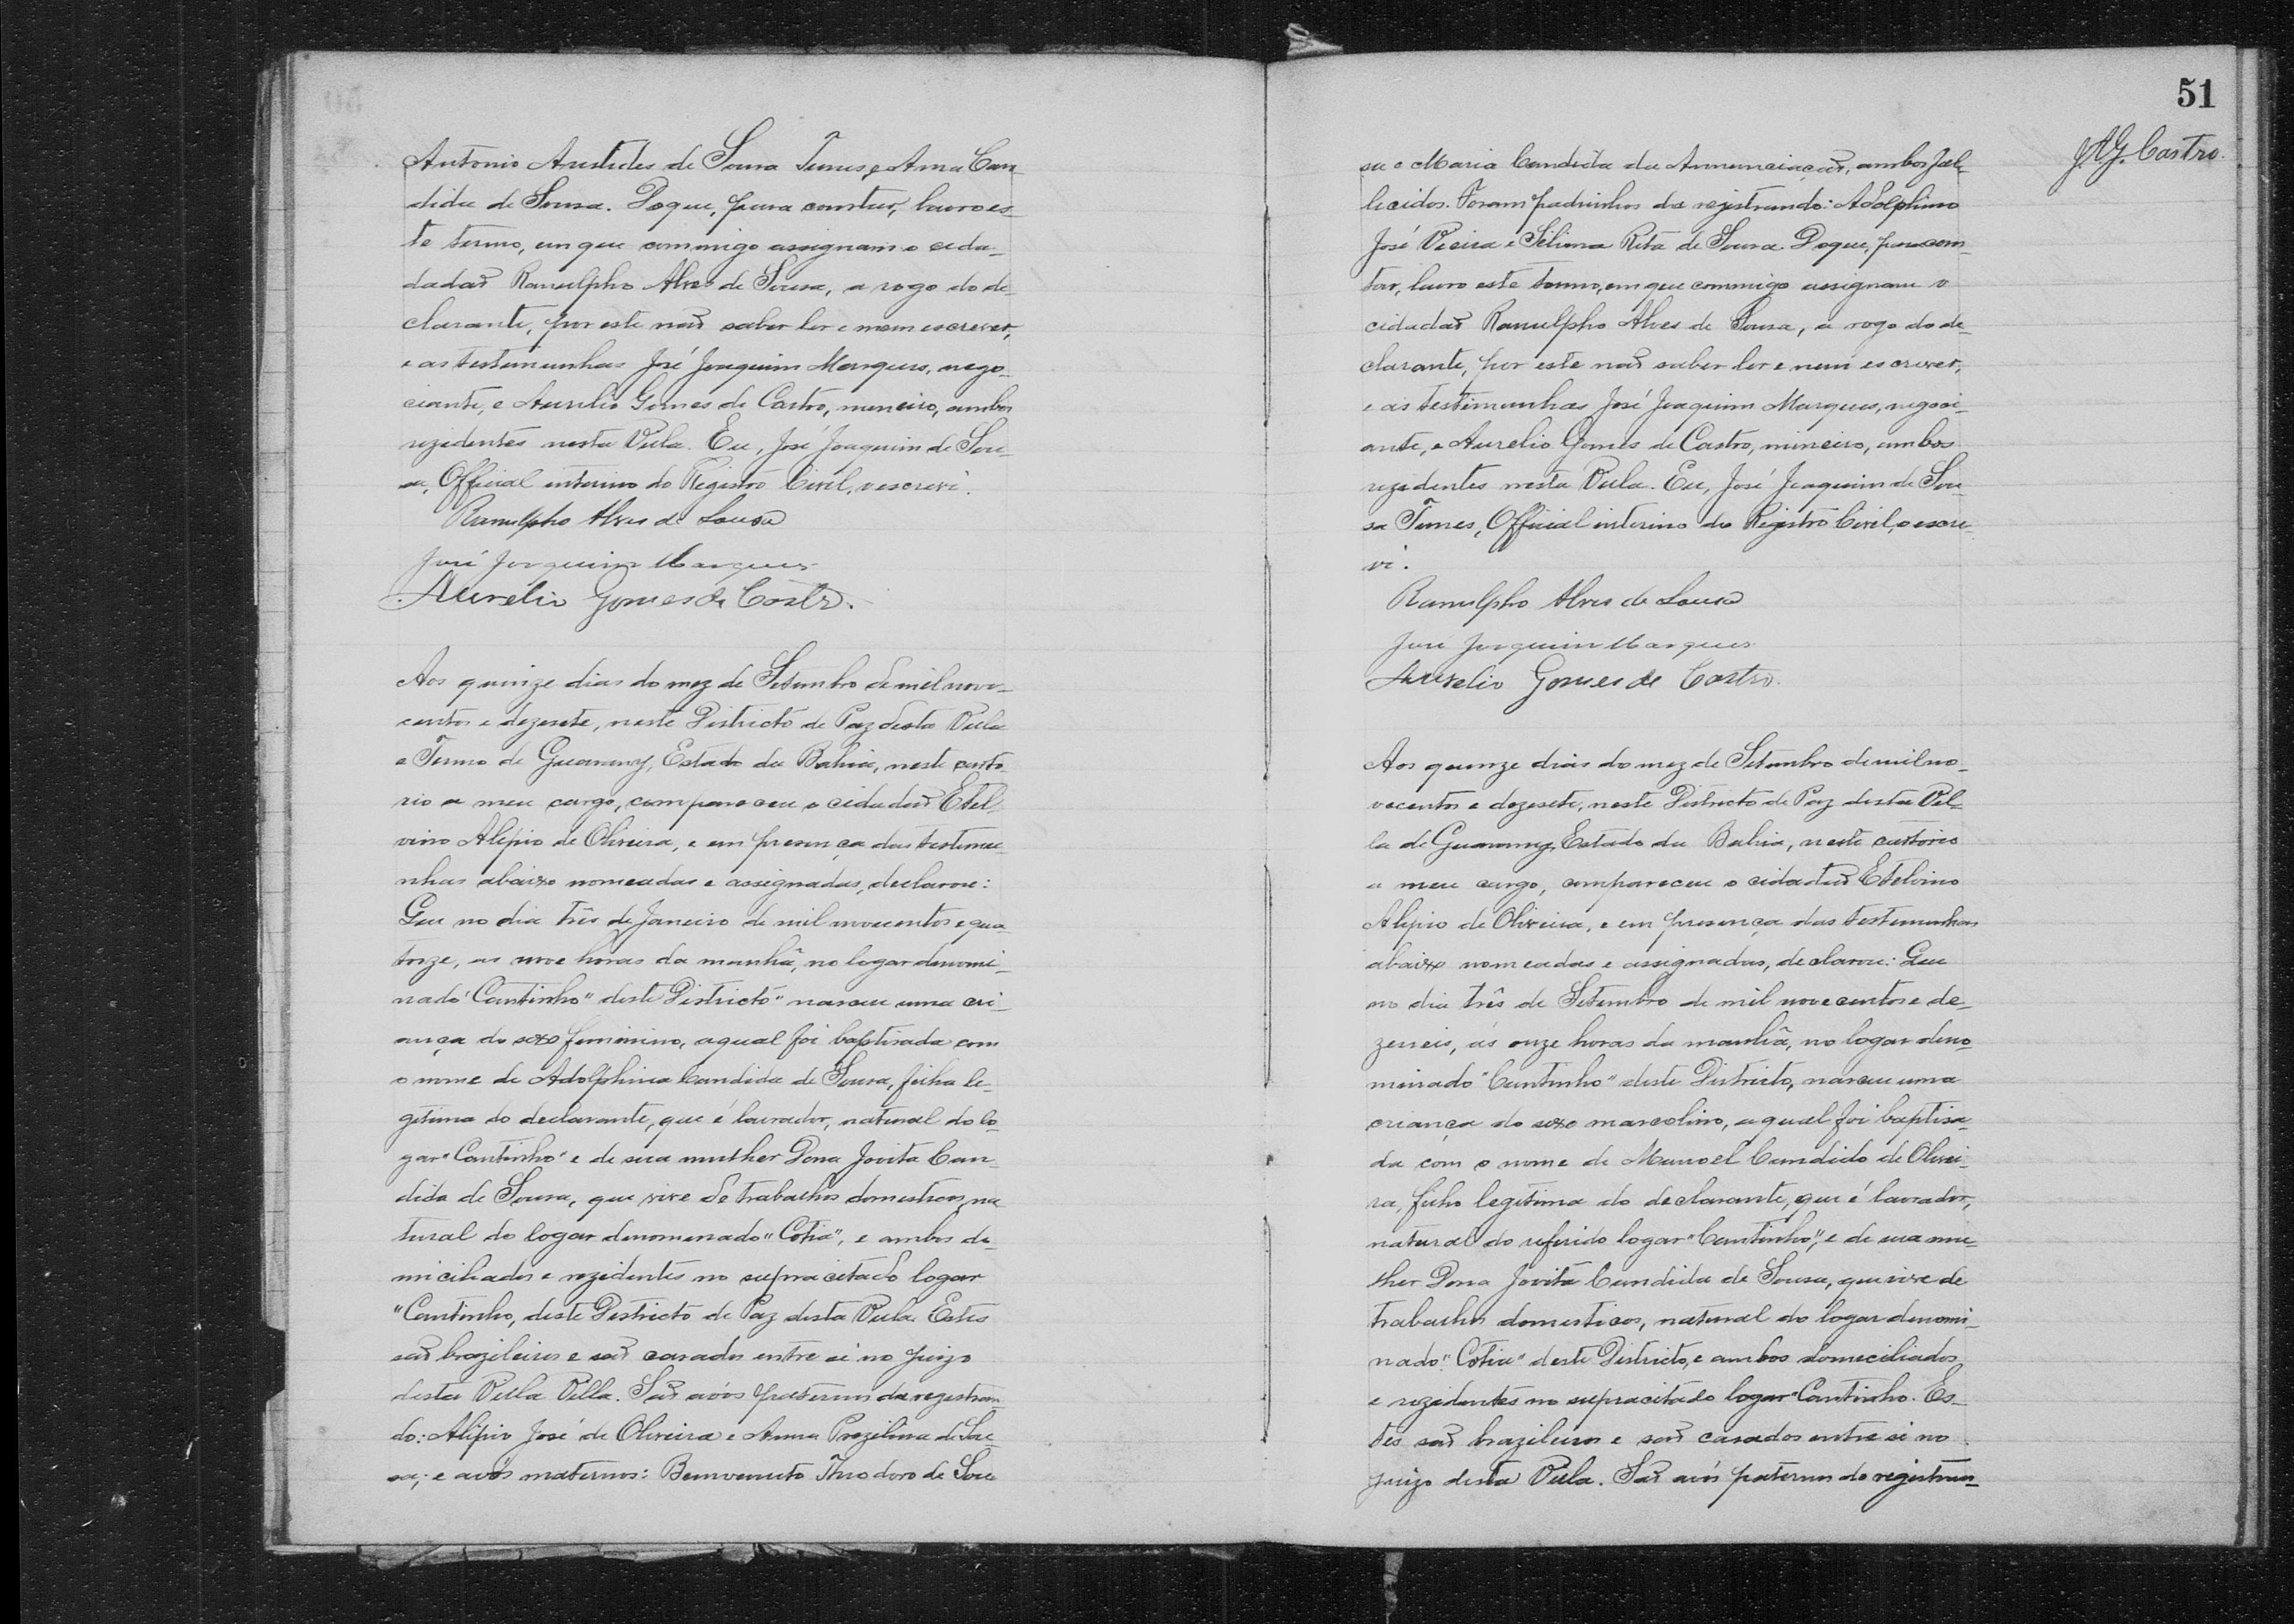 Antonio Aristides de Sousa Tunes, e Anna Can-
dida de Sousa. Do que, para constar, lavro es-
te termo, em que commigo assignam o cida-
dadaõ Ranulpho Alves de Sousa, a rogo do de-
clarante, por este naõ saber ler e nem escrever,
e as testemunhas José Joaquim Marques, nego-
ciante, e Aurelio Gomes de Castro, mineiro, ambos
rezidentes nesta Villa. Eu, José Joaquim de Sou-
sa, Official interino do Registro Civil, o escrevi.
Ranulpho Alves de Sousa
José Joaquim Marques
Aurelio Gomes de Castro.
Aos quinze dias do mez de Setembro de mil nove-
centos e dezesete, neste Districto de Paz desta Villa
e Termo de Guarany, Estado da Bahia, neste carto-
rio a meu cargo, compareceu o cidadaõ Etel-
vino Alipio de Oliveira, e em presença das testemu-
nhas abaixo nomeadas e assignadas, declarou:
Que no dia três de Janeiro de mil novecentos e qua-
torze, as nove horas da manhã, no logar denomi-
nado "Cantinho" deste Districto" nasceu uma cri-
ança do sexo feminino, a qual foi baptisada com
o nome de Adolphina Candida de Sousa, filha le-
gitima do declarante, que é lavrador, natural do lo-
gar "Cantinho" e de sua mulher Dona Jovita Can-
dida de Sousa, que vive de trabalhos domesticos, na-
tural do logar denomenado "Cotia", e ambos do-
miciliados e rezidentes no supracitado logar
"Cantinho, deste Districto de Paz desta Villa. Estes
saõ brazileiros e saõ casados entre si no juizo
desta Villa Villa. Saõ avós paternos da registran-
do: Alipio José de Oliveira e Anna Prezilina de Sou-
sa; e avós maternos: Bemvenuto Theodoro de Sou-
51
J.A.G. Castro.
sa e Maria Candida da Annunciaçaõ, ambos fal-
lecidos. Foram padrinhos da registrando: Adolphino
José Vieira e Silina Rita de Sousa. Do que, para cons-
tar, lavro este termo, em que commigo assignam o
cidadaõ Ranulpho Alves de Sousa, a rogo do de-
clarante, por este naõ saber ler e nem escrever,
e as testemunhas José Joaquim Marques, negoci-
ante, e Aurelio Gomes de Castro, mineiro, ambos
rezidentes nesta Villa. Eu, José Joaquim de Sou-
sa Tunes, Official interino do Registro Civil, o escre-
vi.
Ranulpho Alves de Sousa
José Joaquim Marques
Aurelio Gomes de Castro.
Aos quinze dias do mez de Setembro de mil no-
vecentos e dezesete, neste Districto de Paz desta Vil-
la de Guarany, Estado da Bahia, neste cartorio
a meu cargo, compareceu o cidadaõ Etelvino
Alipio de Oliveira, e em presença das testemunhas
abaixo nomeadas e assignadas, declarou: Que
no dia três de Setembro de mil novecentos e de-
zeseis, ás onze horas da manhã, no logar deno-
minado "Cantinho" deste Districto, nasceu uma
criança do sexo mascolino, a qual foi baptisa-
da com o nome de Manoel Candido de Olivei-
ra, filho legitima do declarante, que é lavrador,
natural do referido logar "Cantinho", e de sua mu-
lher Dona Jovita Candida de Sousa, que vive de
trabalhos domesticos, natural do logar denomi-
nado: "Cotia" deste Districto, e ambos domeciliados
e rezidentes no supracitado logar "Cantinho. Es-
tes saõ brazileiros e saõ casados entre si no
juizo desta Villa. Saõ avós paternos do registran-